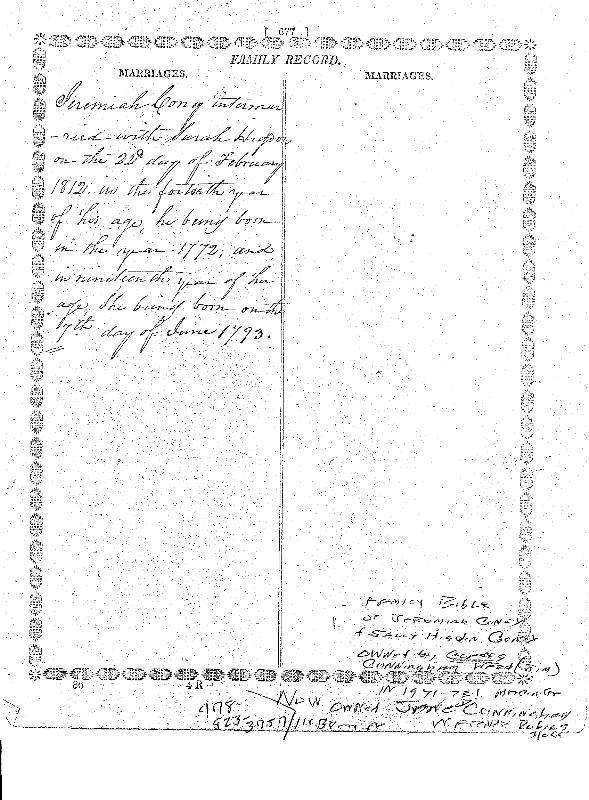 [ 677 ]
FAMILY RECORD.
MARRIAGES.
Jeremiah Coney intermar
-ried with Sarah Higdon
on the 22d day of February
1812. in the fortieth year
of his age, he being born
in the year 1772, and
in nineteenth year of her
age, She being born on the
7th day of June 1793.
MARRIAGES.
Family Bible
of Jeremiah Coney
& Sally Higdon Coney
owned by
Cunningham (Jim)
in 1971-721
80 4R
Now owned Cunningham
978